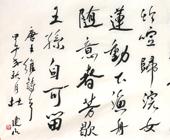 竹喧歸浣女
蓮動下漁舟
隨意春芳歇
王孫自可留
唐王維詩
甲午秋月杜